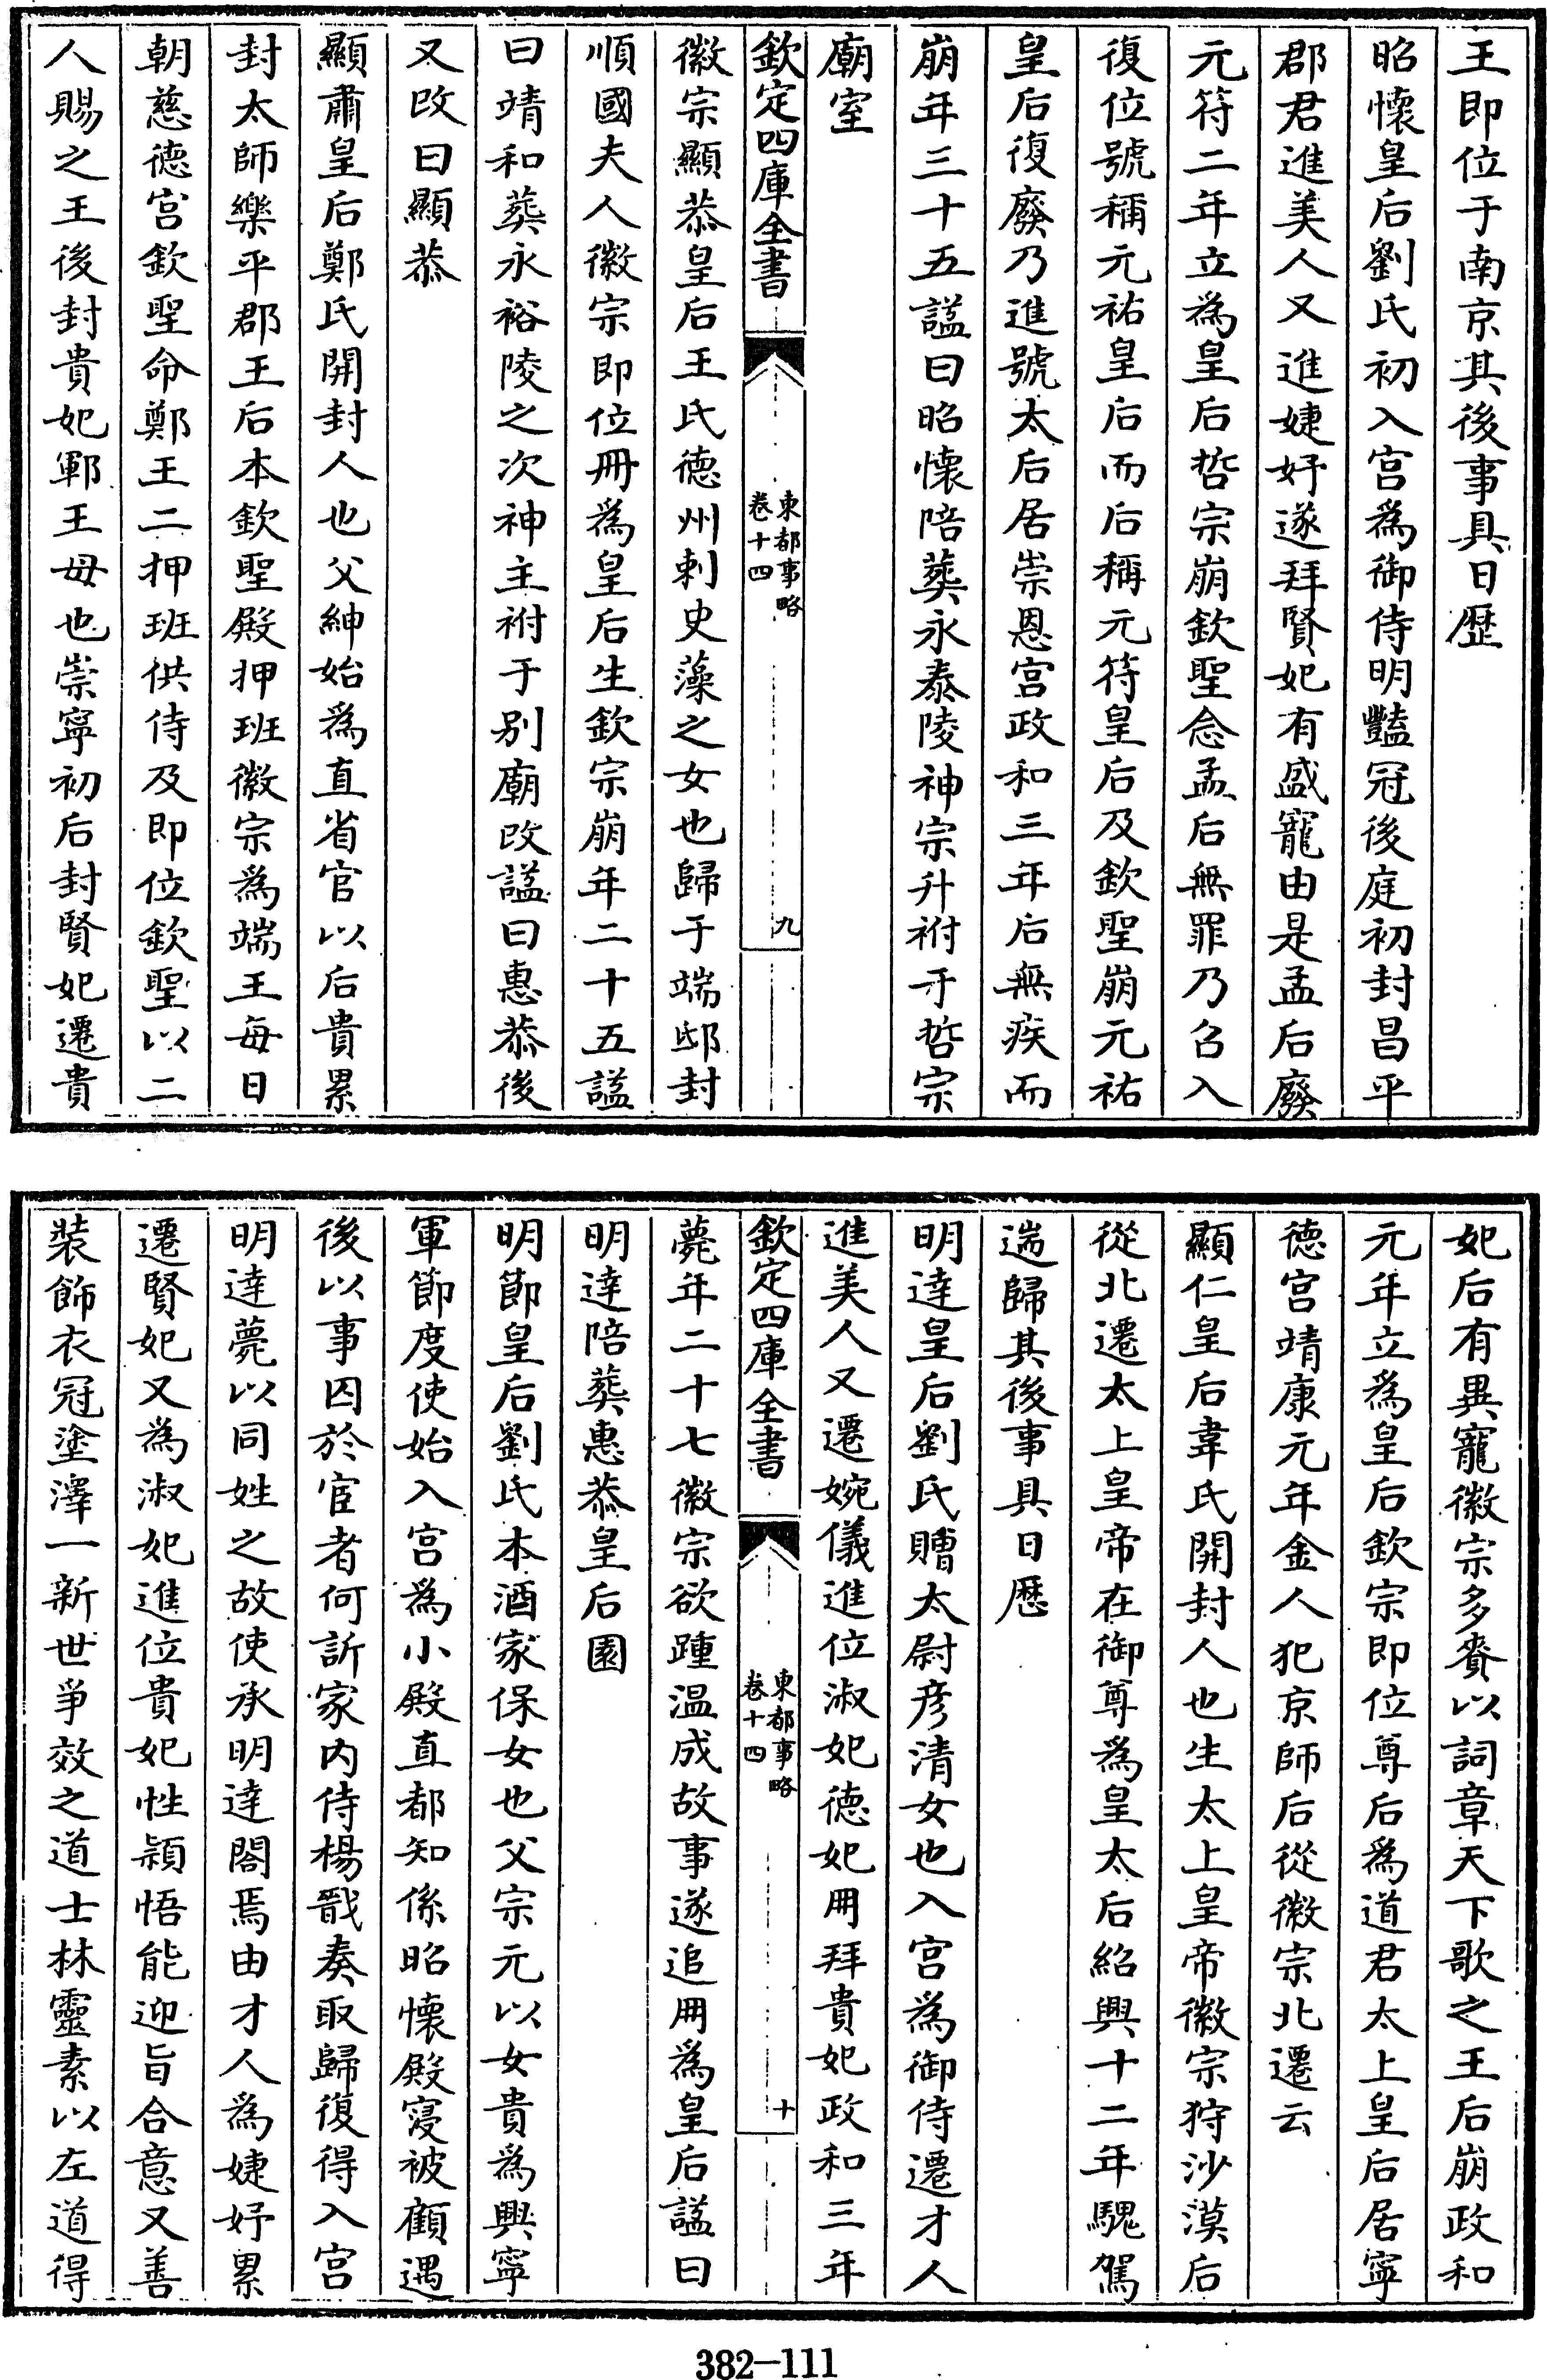 王即位于南京其後事具日歴
昭懷皇后劉氏初入宫為御侍明豔冠後庭初封昌平
郡君進美人又進婕妤遂拜賢妃有盛寵由是孟后廢
元符二年立為皇后哲宗崩欽聖念孟后無罪乃召入
復位號稱元祐皇后而后稱元符皇后及欽聖崩元祐
皇后復廢乃進號太后居崇恩宫政和三年后無疾而
崩年三十五諡曰昭懷陪葬永泰陵神宗升祔于哲宗
廟室
欽定四庫全書
東都事略
卷十四
九
徽宗顯恭皇后王氏德州刺史藻之女也歸于端邸封
順國夫人徽宗即位冊為皇后生欽宗崩年二十五諡
曰靖和葬永裕陵之次神主祔于别廟改諡曰惠恭後
又改曰顯恭
顯肅皇后鄭氏開封人也父紳始為直省官以后貴累
封太師樂平郡王后本欽聖殿押班徽宗為端王每日
朝慈德宫欽聖命鄭王二押班供侍及即位欽聖以二
人賜之王後封貴妃鄆王母也崇寧初后封賢妃遷貴
妃后有異寵徽宗多賚以詞章天下歌之王后崩政和
元年立為皇后欽宗即位尊后為道君太上皇后居寧
德宫靖康元年金人犯京師后從徽宗北遷云
顯仁皇后韋氏開封人也生太上皇帝徽宗狩沙漠后
從北遷太上皇帝在御尊為皇太后紹興十二年騩駕
遄歸其後事具日歴
明達皇后劉氏贈太尉彦清女也入宫為御侍遷才人
進美人又遷婉儀進位淑妃德妃用拜貴妃政和三年
欽定四庫全書
東都事略
卷十四
十
薨年二十七徽宗欲踵温成故事遂追冊為皇后諡曰
明達陪葬惠恭皇后園
明節皇后劉氏本酒家保女也父宗元以女貴為興寧
軍節度使始入宫為小殿直都知係昭懷殿寖被顧遇
後以事囚於宦者何訢家内侍楊戩奏取歸復得入宫
明達薨以同姓之故使承明達閤焉由才人為婕妤累
遷賢妃又為淑妃進位貴妃性穎悟能迎旨合意又善
裝飾衣冠塗澤一新世争效之道士林靈素以左道得
382-111